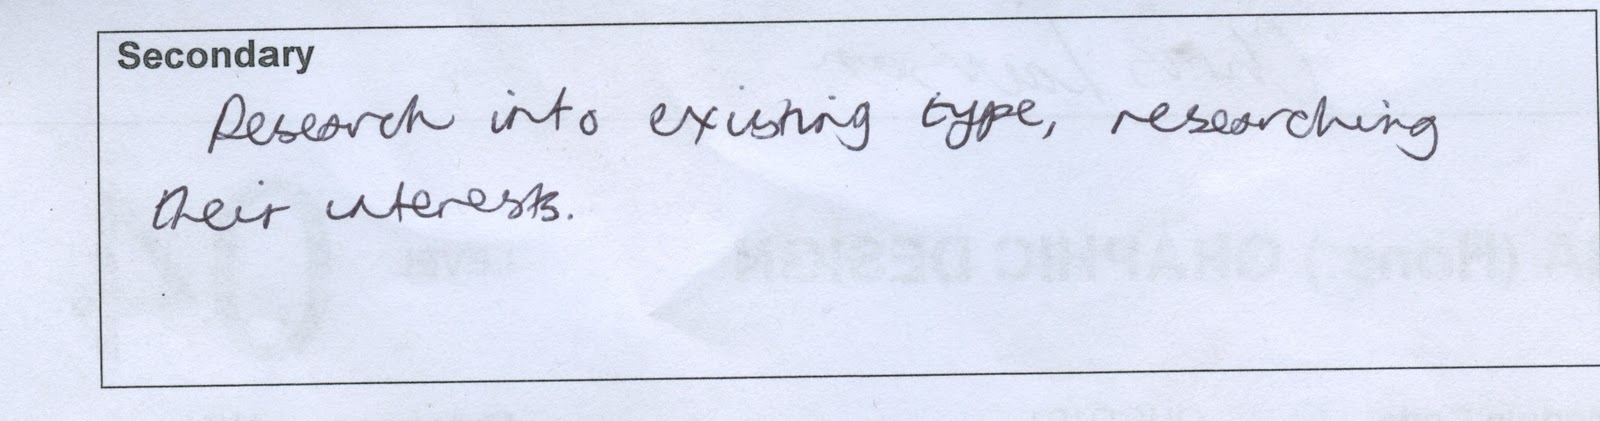 Secondary
Research into existing type, researching
their interests.